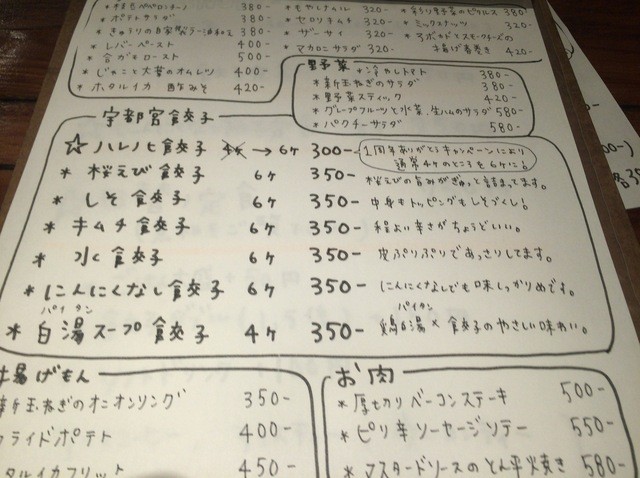 ポテトサラダ 380-
レバーペースト 400-
500-
じゃこと大葉のオムレツ 400-
ホタルイカ 酢みそ 420-
320-
セロリキムチ 320-
ザーサイ 320-
マカロニサラダ 320-
380-
ミックスナッツ 320-
420-
野菜
冷やしトマト 380-
新玉ねぎのサラダ 380-
野菜スティック 420-
グレープフルーツと水菜、生ハムのサラダ 580-
パクチーサラダ 580-
宇都宮餃子
☆ ハレノヒ餃子 4ヶ→6ヶ 300- 1周年ありがとうキャンペーンにより
通常4ヶのところを6ヶに!
* 桜えび餃子 6ヶ 350- 桜えびの旨みがぎゅっと詰まってます。
* しそ餃子 6ヶ 350- 中身もトッピングもしそづくし!
* キムチ餃子 6ヶ 350- 程よい辛さがちょうどいい。
* 水餃子 6ヶ 350- 皮ぷりぷりであっさりしてます。
* にんにくなし餃子 6ヶ 350- にんにくなしでも味しっかりめです。
パイタン パイタン
* 白湯スープ餃子 4ヶ 350- 鶏白湯×餃子のやさしい味わい。
揚げもん
新玉ねぎのオニオンリング 350-
フライドポテト 400-
タルイカフリット 450-
お肉
* 厚切りベーコンステーキ 500-
* ピリ辛ソーセージソテー 550-
* マスタードソースのとん平焼き 580-